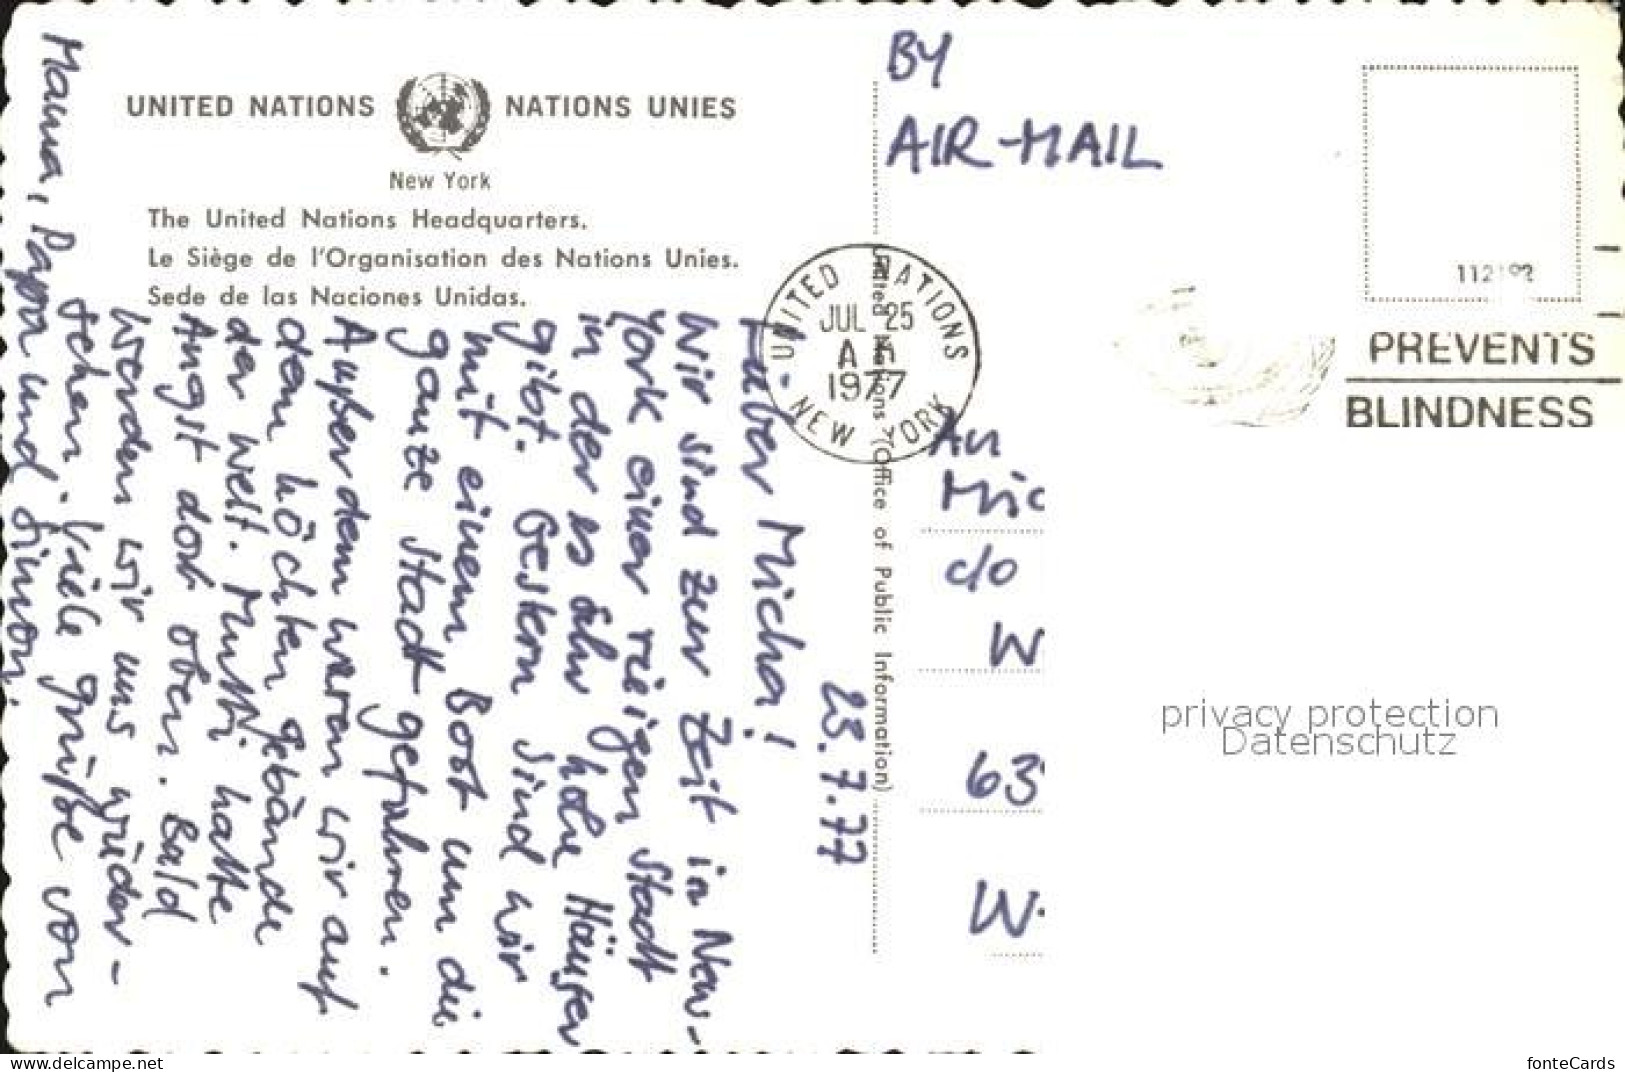 UNITED NATIONS NATIONS UNIES
New York
The United Nations Headquarters.
Le Siège de l'Organisation des Nations Unies.
Sede de las Naciones Unidas.
23.7.77
Lieber Micha!
Wir sind zur Zeit in New-
York einer riesigen Stadt
in der es sehr hohe Häuser
gibt. Gestern sind wir
mit einem Boot um die
ganze Stadt gefahren.
Außerdem waren wir auf
dem höchsten Gebäude
der Welt. Mutti hatte
Angst dort oben. Bald
werden wir uns wieder-
sehen. Viele Grüße von
Mama, Papa und Simon.
United Nations (Office of Public Information)
BY
AIR-MAIL
UNITED NATIONS
JUL 25
1977
U - NEW YORK
PREVENTS
BLINDNESS
An
Mic
c/o
W
63
W.
privacy protection
Datenschutz
www.delcampe.net
fonteCards